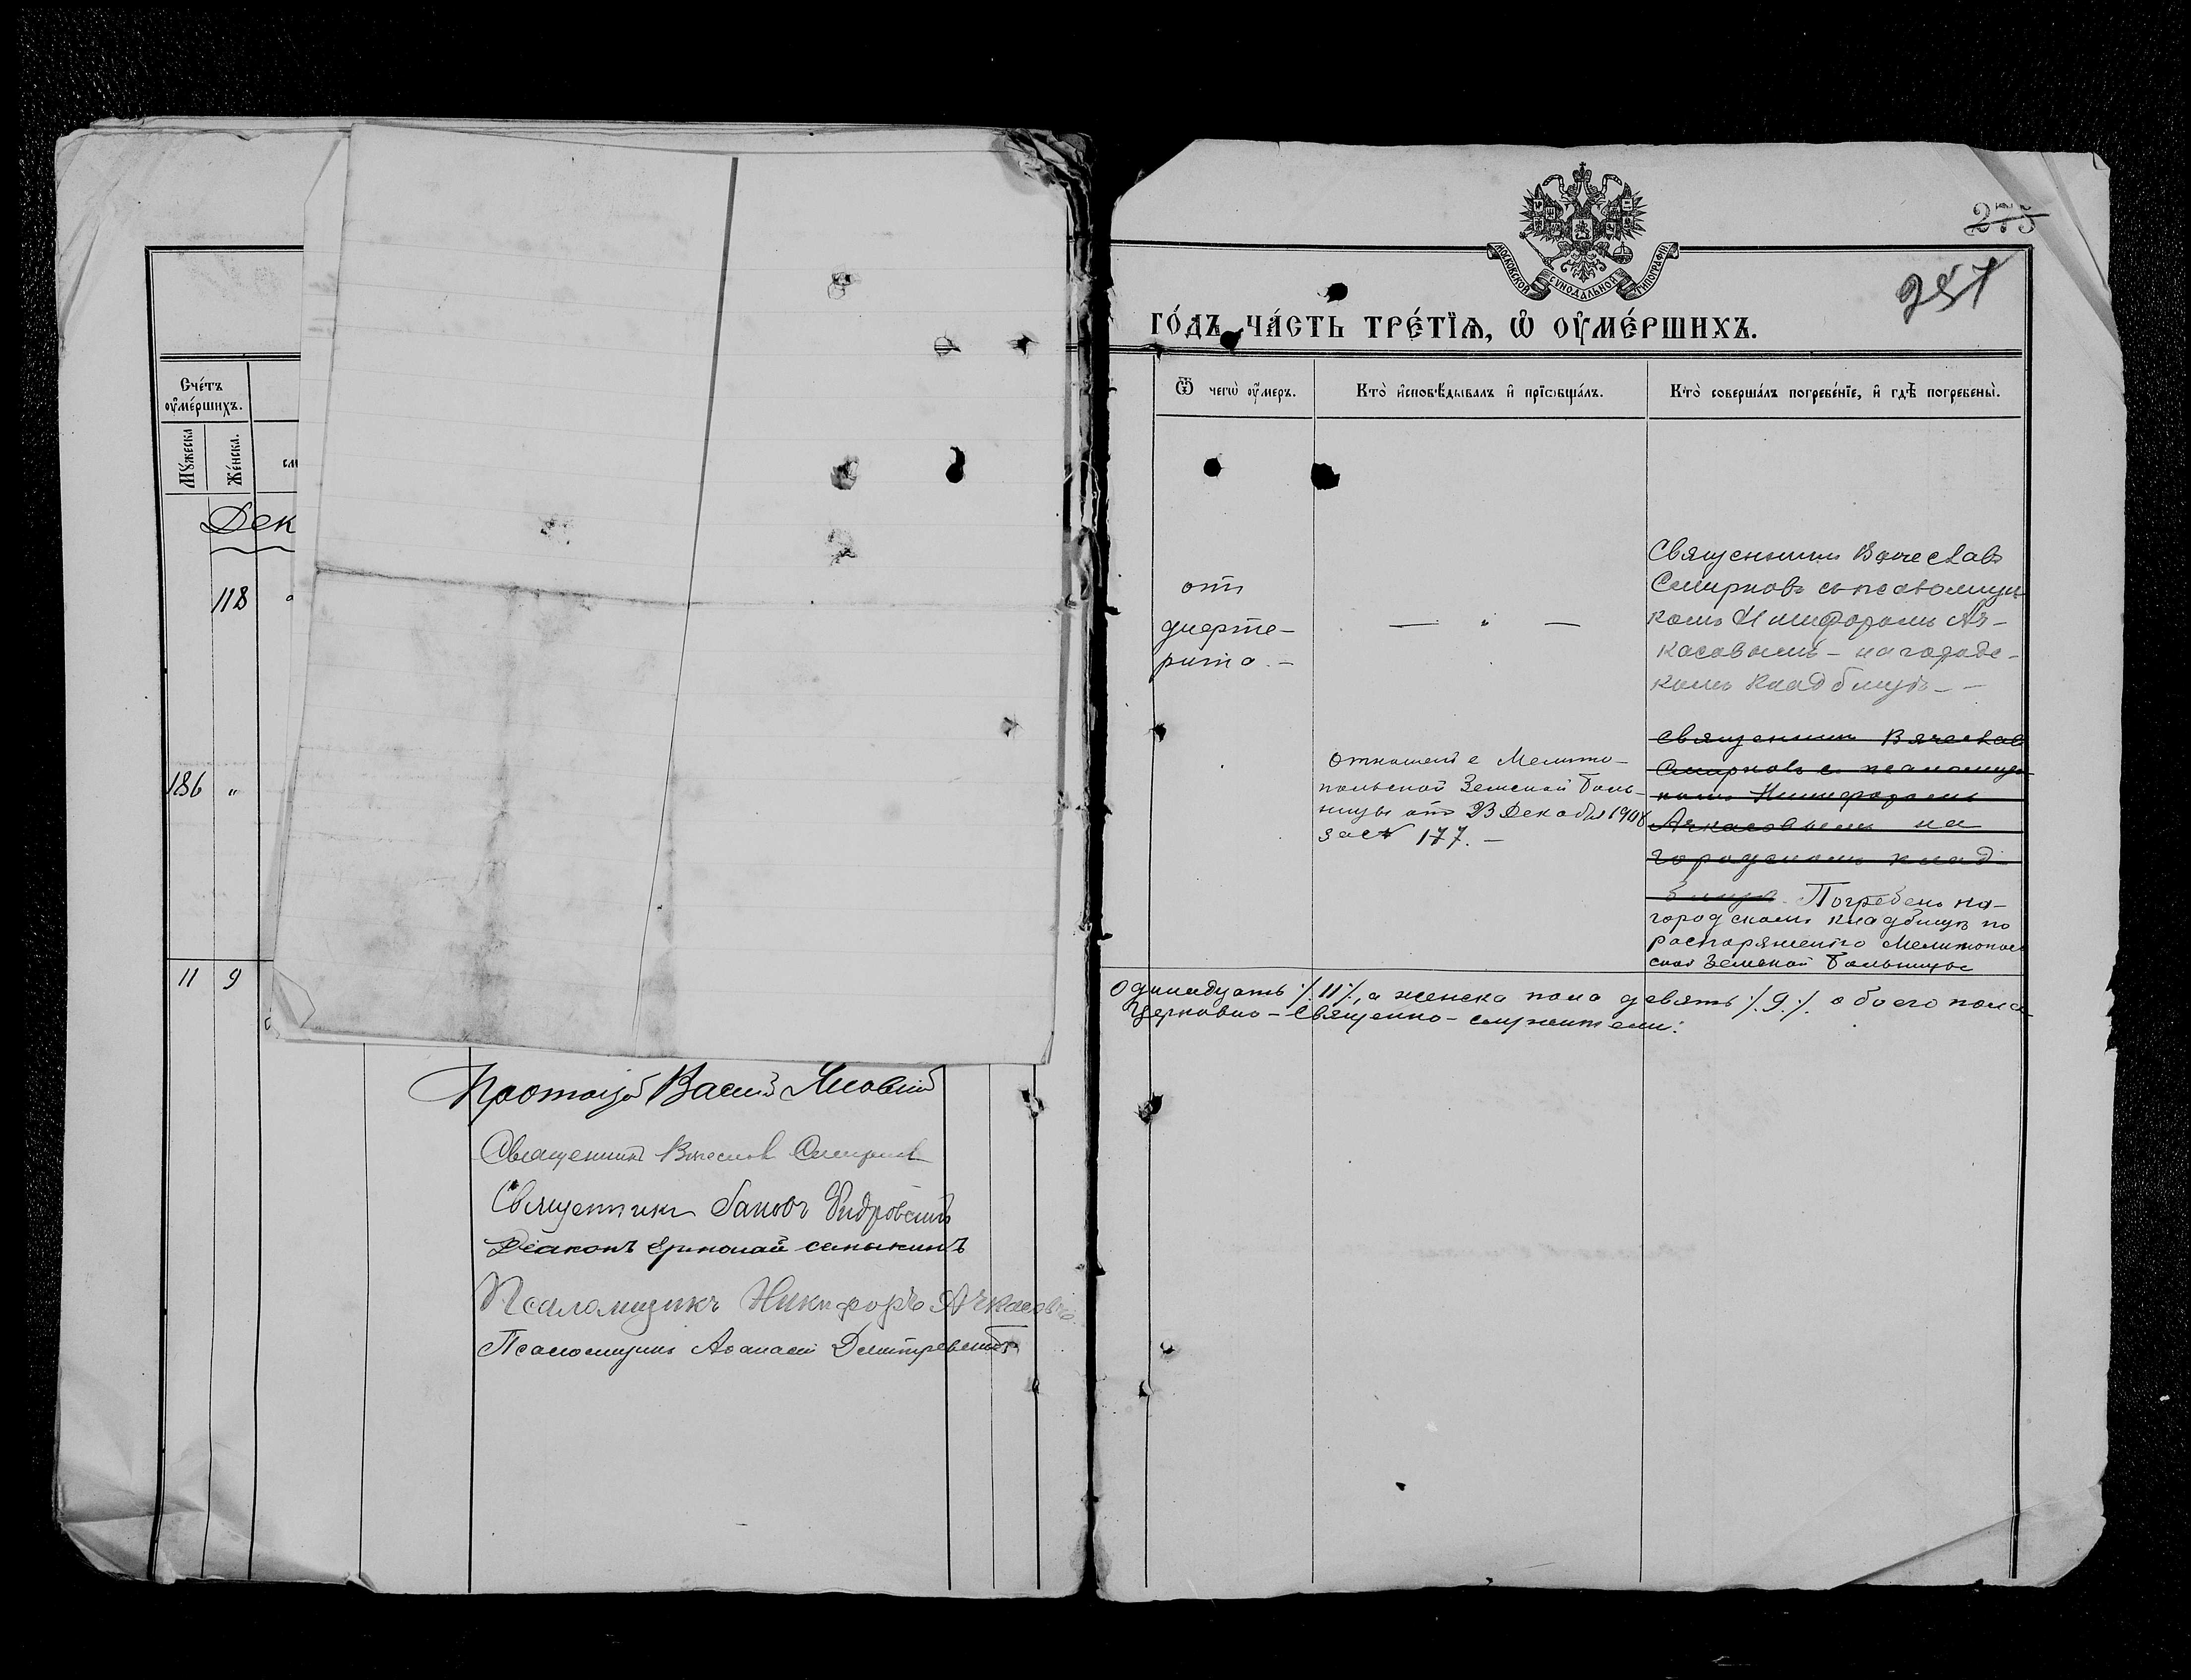 Счéтъ
ѹ҆мéршихъ.
Мꙋжеска
Жéнска.
Дек
118
186 "
11 9
Протоіер Васил
Священникъ Вячеслав Смирнов
Священникъ Іаковъ
Діаконъ
Псаломщикъ Никифоръ Ачкасовъ
Псаломщикъ Аѳанасій
МОСКОВСКОЙ СѴНОДАЛЬНОЙ ТИПОГРАФІИ
275
257
ГÓДЪ ЧÁСТЬ ТРÉТЇѦ, Ѡ҆ ОУ҆МÉРШИХЪ.
Ѿ чегѡ̀ ѹ҆́меръ.
Ктò и҆сповѣ́дывалъ и҆ прїѡбщáлъ.
Ктò совершáлъ погребéнїе, и҆ гдѣ̀ погребены̀.
отъ
дифте-
рита. –
— " —
Священник Вячеславъ
Смирновъ съ псаломщи-
комъ Никифоромъ Ач-
касовымъ – на городс-
комъ кладбищѣ – –
отношеніе Мелито-
польской Земской Боль-
ницы отъ 23 Декабря 1908
за № 177. –
Священник Вячеслав
Смирновъ с псаломщи-
комъ Никифоромъ
Ачкасовымъ на
городскомъ клад-
бищѣ. Погребенъ на
городскомъ кладбищѣ по
распоряженію Мелитополь
ской Земской Больницы
Одинадцать ·/. 11 ·/., а женска пола девять ·/. 9 ·/. обоего пола
Церковно – Священно – служители: